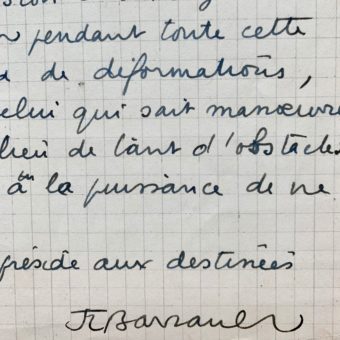 pendant toute cette
de déformations,
celui qui sait manœuvre
lieu de tant d'obstacles
à la puissance de ne
préside aux destinées
JLBarrault